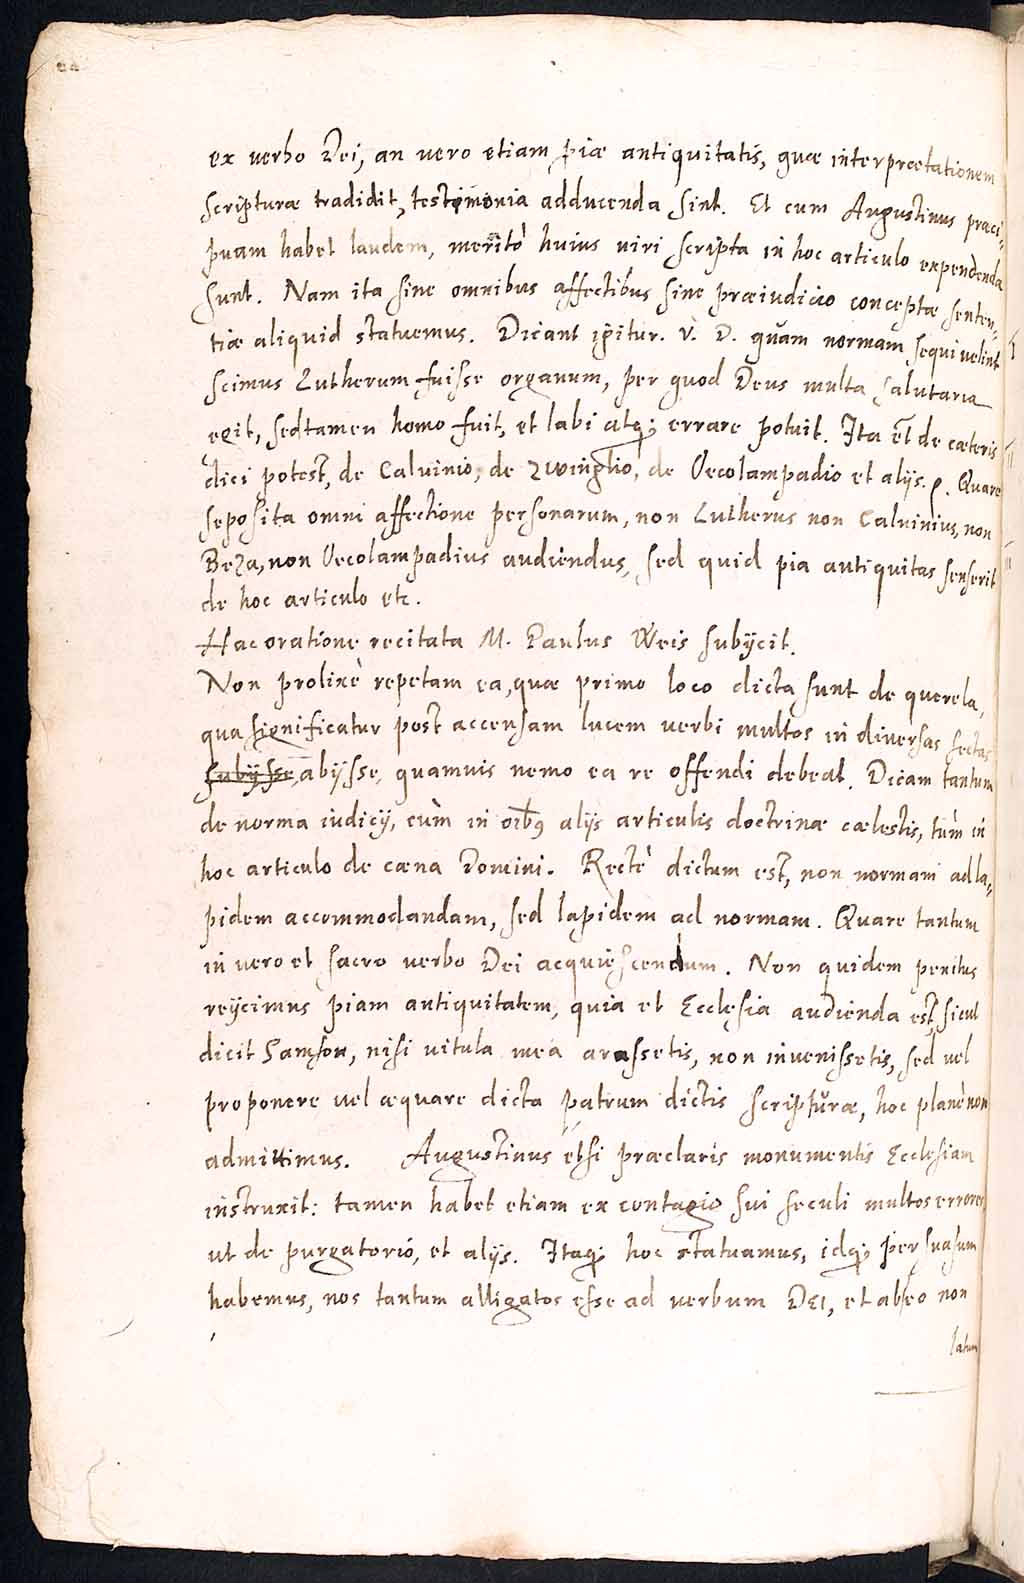 ex verbo Dei, an vero etiam piæ antiquitatis, quæ interprætationem
scripturæ tradidit, testimonia adducenda sint. Et cum Augustinus præci-
puam habet laudem, meritò huius viri scripta in hoc articulo expendenda
sunt. Nam ita sine omnibus affectibus sine præiudicio conceptæ senten-
tiæ aliquid statuemus. Dicant igitur. V. D. quam normam sequi velint
scimus Lutherum fuisse organum, per quod Deus multa salutaria
egit, sed tamen homo fuit, et labi atq; errare potuit. Ita et̃ de cæteris
dici potest, de Caluinio, de Zwinglio, de Oecolampadio et alijs. Quare
seposita omni affectione personarum, non Lutherus non Caluinius, non
Beza, non Oecolampadius audiendus, sed quid pia antiquitas senserit
de hoc articulo etc.
Hac oratione recitata M. Paulus Weis subijcit.
Non prolixè repetam ea, quæ primo loco dicta sunt de querela,
qua significatur post accensam lucem verbi multos in diversas sectas
subijsse, abijsse, quamuis nemo ea re offendi debeat. Dicam tantum
de norma iudicij, cùm in oibꝰ alijs articulis doctrinæ cælestis, tùm in
hoc articulo de cæna Domini. Rectè dictum est, non normam ad la-
pidem accommodandam, sed lapidem ad normam. Quare tantum
in vero et sacro verbo Dei acquiescendum. Non quidem penitus
reijcimus piam antiquitatem, quia et Ecclesia audienda est, sicut
dicit Samson, nisi vitula mea arassetis, non invenissetis, sed vel
proponere vel æquare dicta patrum dictis scripturæ, hoc planè non
admittimus. Augustinus etsi præclaris monumentis Ecclesiam
instruxit: tamen habet etiam ex contagio sui seculi multos errores,
ut de purgatorio, et alijs. Itaq; hoc statuamus, idq; persuasum
habemus, nos tantum alligatos esse ad verbum DEI, et ab eo non
latum